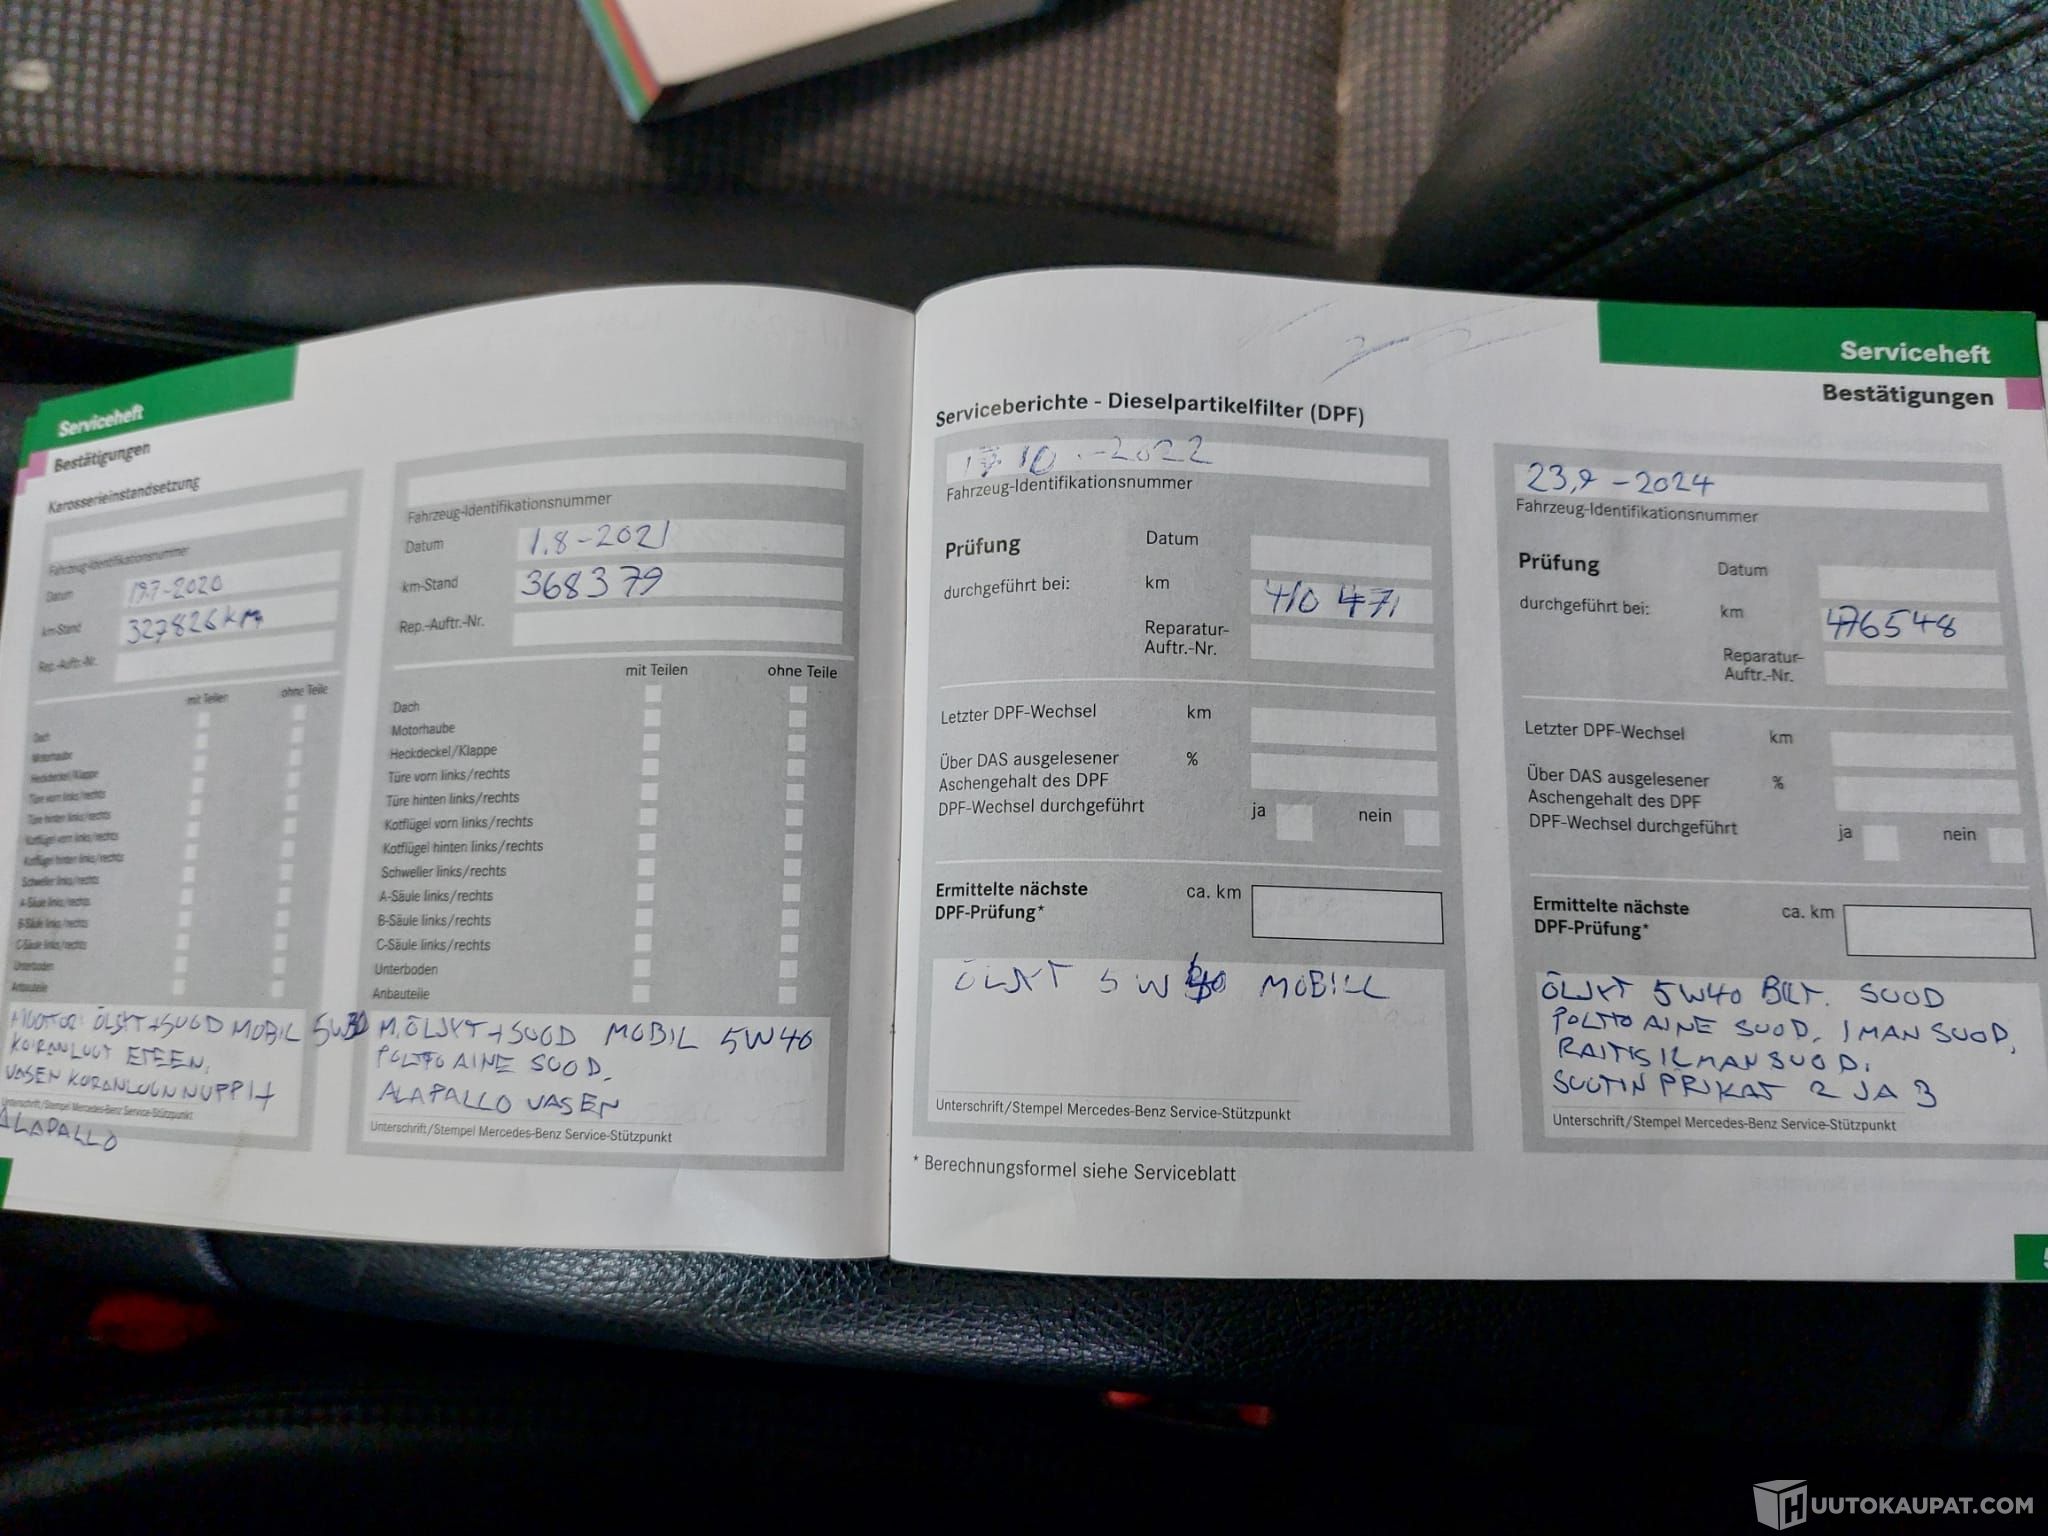 Serviceheft
Bestätigungen
Karosserieinstandsetzung
Fahrzeug-Identifikationsnummer
Datum 19.7-2020
km-Stand 327826 km
Rep.-Auftr.-Nr.
mit Teilen ohne Teile
Dach
Motorhaube
Heckdeckel/Klappe
Türe vorn links/rechts
Türe hinten links/rechts
Kotflügel vorn links/rechts
Kotflügel hinten links/rechts
Schweller links/rechts
A-Säule links/rechts
B-Säule links/rechts
C-Säule links/rechts
Unterboden
Anbauteile
ÖLJYT + SUOD MOBIL
KOIRANLUUT ETEEN,
VASEN KOIRANLUUN NUPPI +
Unterschrift/Stempel Mercedes-Benz Service-Stützpunkt
ALAPALLO
Fahrzeug-Identifikationsnummer
Datum 1.8-2021
km-Stand 368379
Rep.-Auftr.-Nr.
mit Teilen ohne Teile
Dach
Motorhaube
Heckdeckel/Klappe
Türe vorn links/rechts
Türe hinten links/rechts
Kotflügel vorn links/rechts
Kotflügel hinten links/rechts
Schweller links/rechts
A-Säule links/rechts
B-Säule links/rechts
C-Säule links/rechts
Unterboden
Anbauteile
M.ÖLJYT + SUOD MOBIL 5W40
POLTTOAINE SUOD.
ALAPALLO VASEN
Unterschrift/Stempel Mercedes-Benz Service-Stützpunkt
Serviceheft
Bestätigungen
Serviceberichte - Dieselpartikelfilter (DPF)
17.10.-2022
Fahrzeug-Identifikationsnummer
Prüfung Datum
durchgeführt bei: km 410 471
Reparatur-
Auftr.-Nr.
Letzter DPF-Wechsel km
Über DAS ausgelesener %
Aschengehalt des DPF
DPF-Wechsel durchgeführt ja nein
Ermittelte nächste ca. km
DPF-Prüfung*
ÖLJYT 5W MOBILL
Unterschrift/Stempel Mercedes-Benz Service-Stützpunkt
* Berechnungsformel siehe Serviceblatt
23,9-2024
Fahrzeug-Identifikationsnummer
Prüfung Datum
durchgeführt bei: km 476548
Reparatur-
Auftr.-Nr.
Letzter DPF-Wechsel km
Über DAS ausgelesener %
Aschengehalt des DPF
DPF-Wechsel durchgeführt ja nein
Ermittelte nächste ca. km
DPF-Prüfung*
ÖLJYT 5W40 BILT. SUOD
POLTTOAINE SUOD, ILMAN SUOD,
RAITISILMANSUOD.
SUUTIN PRIKAT 2 JA 3
Unterschrift/Stempel Mercedes-Benz Service-Stützpunkt
HUUTOKAUPAT.COM